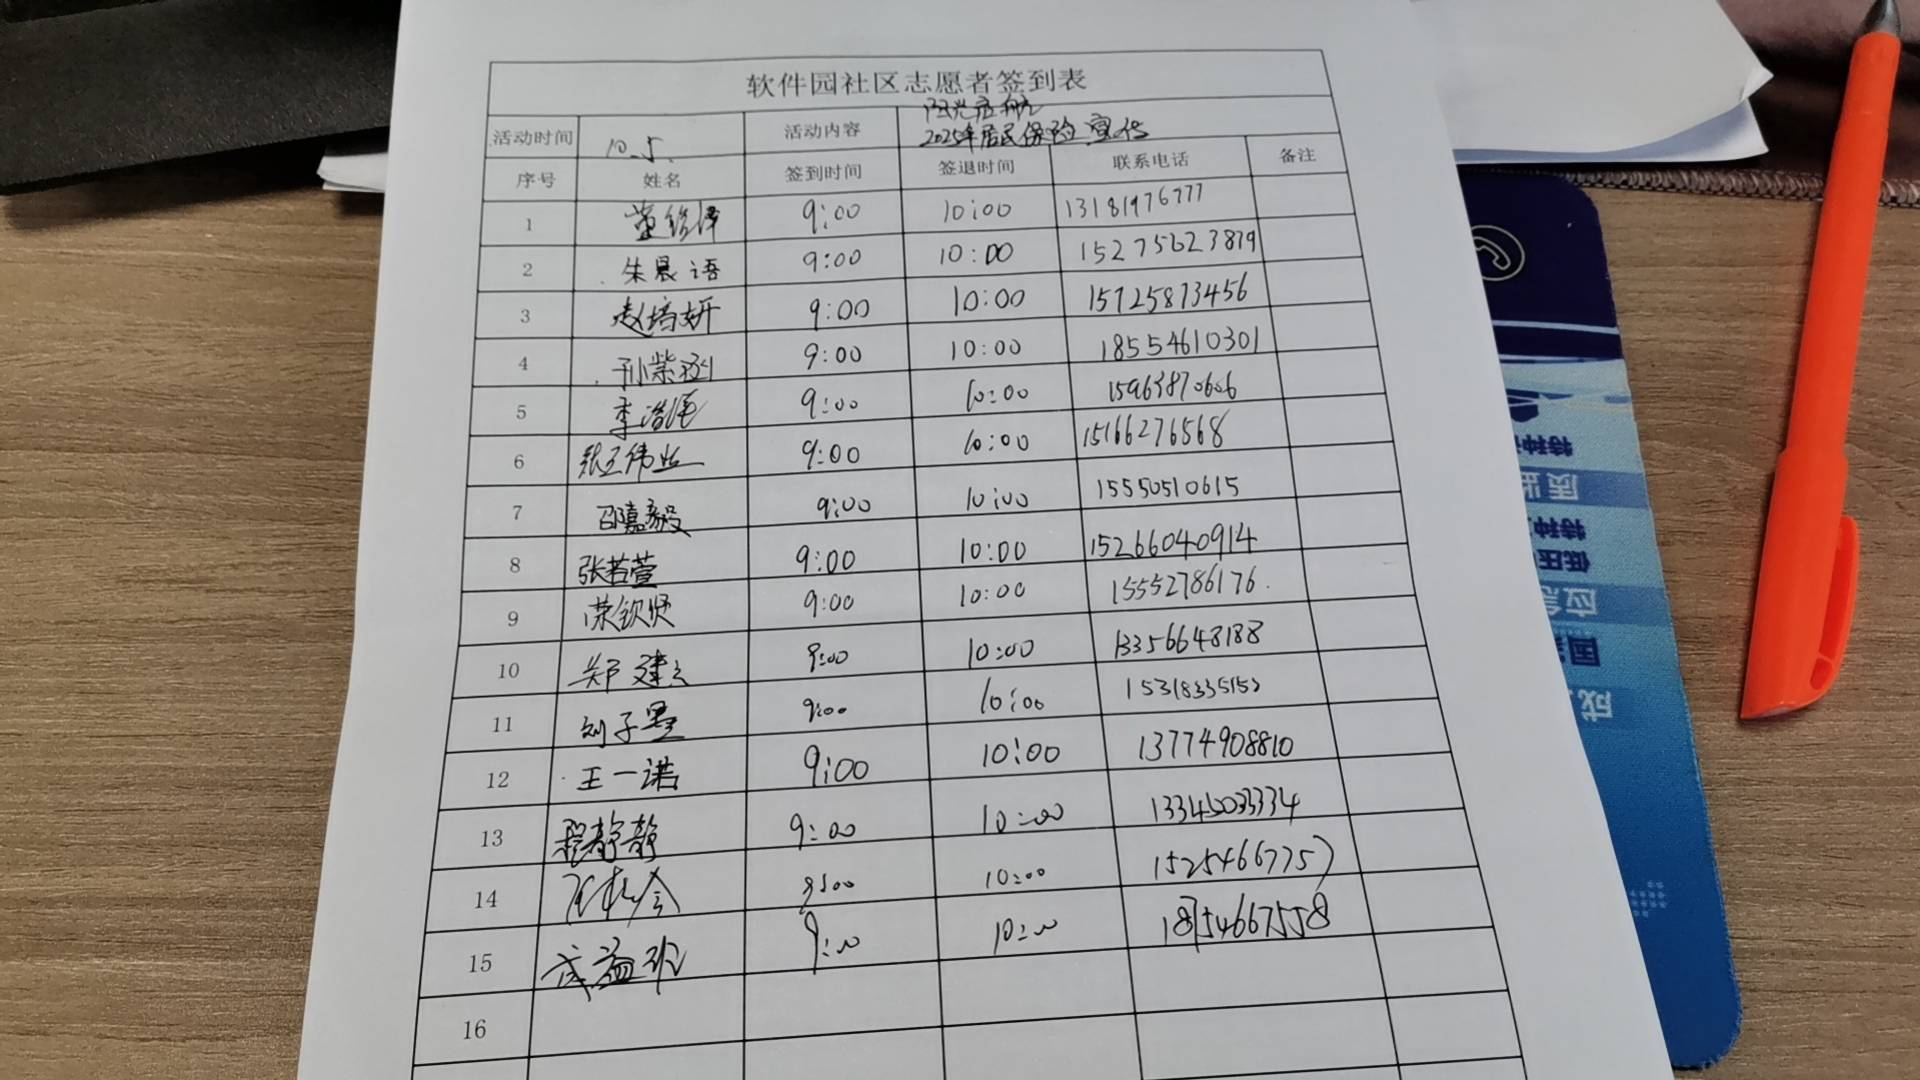 软件园社区志愿者签到表
阳光启航
活动时间 10.5. 活动内容 2025年居民保险宣传
序号 姓名 签到时间 签退时间 联系电话 备注
1 9:00 10:00 13181976777
2 朱晨语 9:00 10:00 15275623879
3 赵培妍 9:00 10:00 15725873456
4 孙紫 9:00 10:00 18554610301
5 李浩 9:00 10:00 15963870606
6 张王伟业 9:00 10:00 15166276568
7 邵嘉毅 9:00 10:00 15550510615
8 张若萱 9:00 10:00 15266040914
9 荣钦贤 9:00 10:00 15552786176.
10 郑建 9:00 10:00 13356648188
11 刘子墨 9:00 10:00
12 王一诺 9:00 10:00 13774908810
13 程静静 9:00 10:00
14 9:00 10:00 15254667757
15 9:00 10:00 18754667558
16
特种
质监
特种
低压
应急
国
成